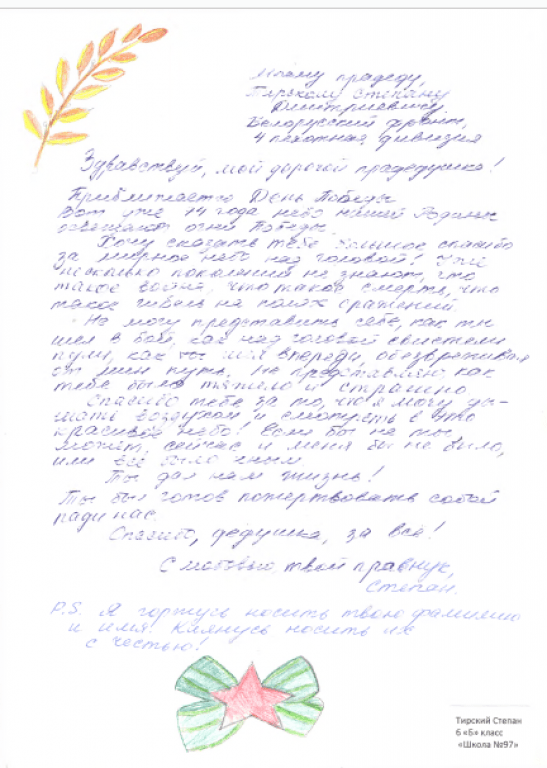 Моему прадеду,
Тирскому Степану
Дмитриевичу,
Белорусский фронт,
4 пехотная дивизия
Здравствуй, мой дорогой прадедушка!
Приближается День Победы
Вот уже 74 года небо нашей Родины
освещают огни Победы.
Хочу сказать тебе большое спасибо
за мирное небо над головой! Уже
несколько поколений не знают, что
такое война, что такое смерть, что
такое гибель на полях сражений.
Не могу представить себе, как ты
шел в бой, как над головой свистели
пули, как ты шел впереди, обезвреживая
от мин путь. Не представляю, как
тебе было тяжело и страшно.
Спасибо тебе за то, что я могу ды-
шать воздухом и смотреть в это
красивое небо! Если бы не ты,
может, сейчас и меня бы не было,
или всё было иным.
Ты дал нам жизнь!
Ты был готов пожертвовать собой
ради нас.
Спасибо, дедушка, за всё!
С любовью, твой правнук,
Степан.
P.S. Я горжусь носить твою фамилию
и имя! Клянусь носить их
с честью!
Тирский Степан
6 «Б» класс
«Школа №97»